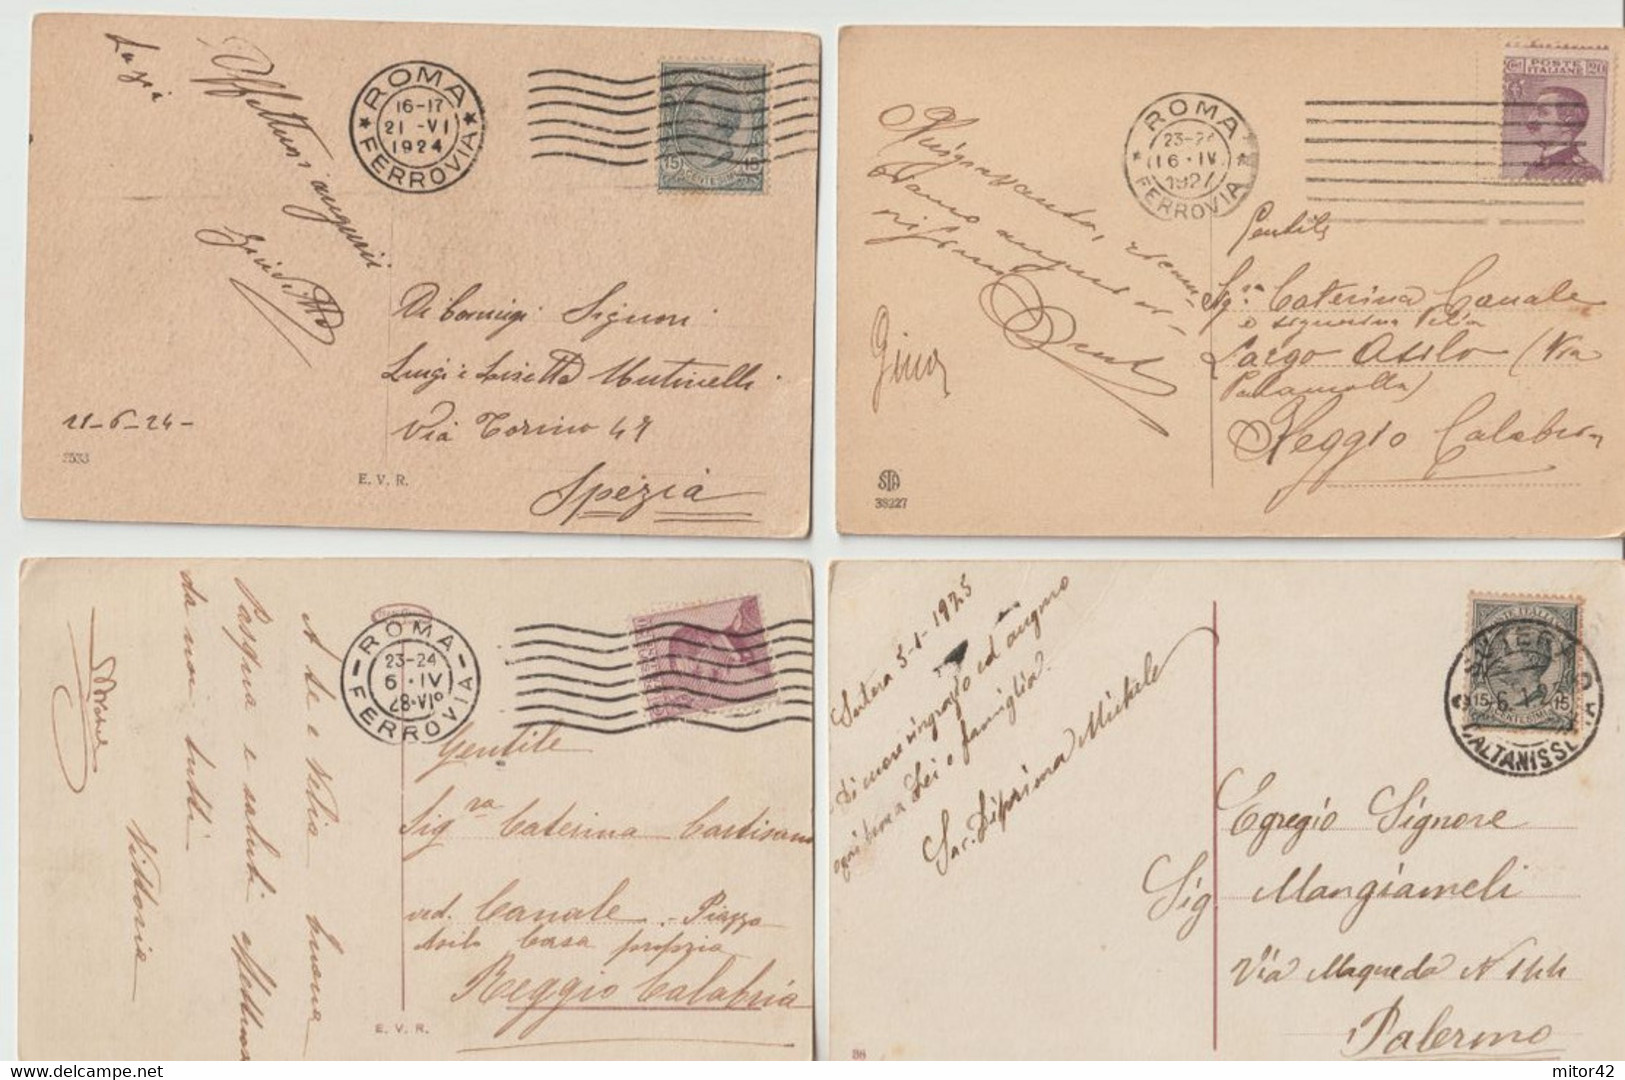 Luigi
Affettuosi auguri
ROMA
16-17
21 -VI
1924
FERROVIA
15 15
CENTESIMI
Signori
Luigi e Lisetta Mutinelli
Via Torino 47
Spezia
21-6-24-
2533
E. V. R.
POSTE
ITALIANE
20
ROMA
23-24
16 · IV
1927
FERROVIA
Ringraziando,
Gina
Gentile
Sig.ra Caterina Canale
e signorina Velia
Largo Asilo (Via
Reggio Calabria
STA
38227
ROMA
23-24
6 · IV
FERROVIA
A te e Velia buona
Pasqua e saluti affettuosi
da noi tutti
Vittoria
Gentile
Sig.ra Caterina
ved. Canale - Piazza
Asilo Casa propria
Reggio Calabria
E. V. R.
Sutera 5-1-1925
Di cuore ringrazio ed auguro
ogni bene a Lei e famiglia.
Sac. Diprima Michele
15 15
CENTESIMI
6. 1. 25
CALTANISSETTA
Egregio Signore
Sig Mangiameli
Via Maqueda N 144
Palermo
38
mitor42